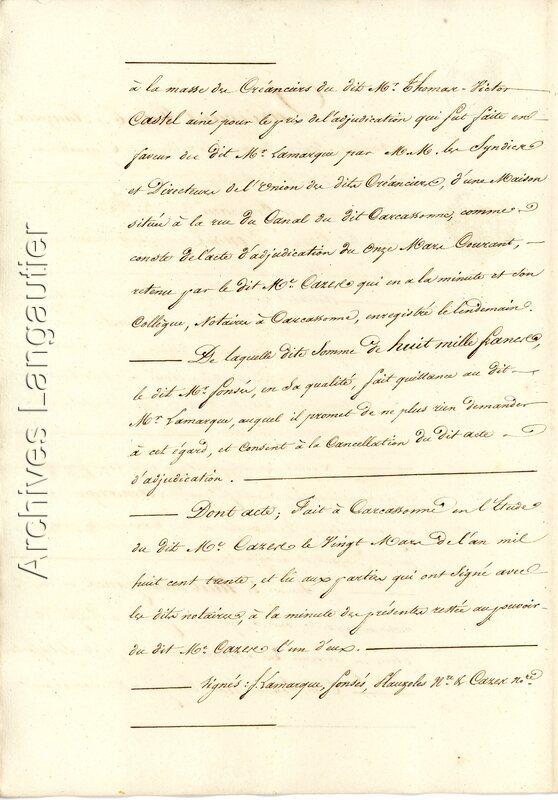 à la masse des Créanciers du dit Mr. Thomas-Victor
Castel ainé pour le prix de l'adjudication qui fut faite en
faveur du dit Mr. Lamarque par M.M. les Syndics
et Directeurs de l'Union des dits Créanciers, d'une Maison
située à la rue du Canal du dit Carcassonne, comme
conste de l'acte d'adjudication du Onze Mars Courant,
retenu par le dit Me. Cazes qui en a la minute et son
Collègue, Notaires à Carcassonne, enregistré le lendemain.
De laquelle dite Somme de huit mille francs,
le dit Mr. Sonsés, en Sa qualité, fait quittance au dit
Mr. Lamarque, auquel il promet de ne plus rien demander
à cet égard, et Consent à la Cancellation du dit acte
d'adjudication.
Dont acte; Fait à Carcassonne en l'Etude
du dit Me. Cazes le Vingt Mars de l'an mil
huit cent trente, et lû aux parties qui ont Signé avec
les dits notaires, à la minute des présentes restée au pouvoir
du dit Me. Cazes l'un d'eux.
Signés: J. Lamarque, Sonsés, Nre. & Cazes nore.
Archives Langautier